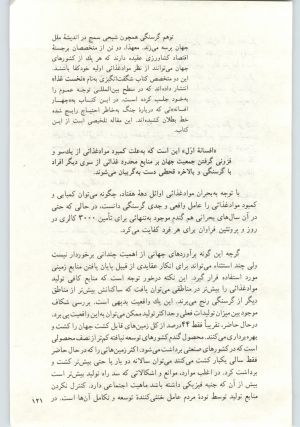 توهم گرسنگی همچون شبحی سمج در اندیشهٔ ملل
جهان پرسه می‌زند. معهذا، دو تن از متخصصان برجستهٔ
اقتصاد کشاورزی عقیده دارند که هر یك از کشورهای
جهان می‌توانند از نظر موادغذائی اولیه خودکفا باشند.
این دو متخصص کتاب شگفت‌انگیزی به‌نام «نخست غذا»
انتشار داده‌اند که در سطح بین‌المللی توجه عموم را
به‌خود جلب کرده است. در این کتاب به«چهار
افسانه»ئی که دربارهٔ جنگ به‌خاطر احتیاج رایج شده
خط بطلان کشیده‌اند. این مقاله تلخیصی است از این
کتاب.
«افسانهٔ اوّل» این است که به‌علت کمبود موادغذائی از یك‌سو و
فزونی گرفتن جمعیت جهان بر منابع محدود غذائی از سوی دیگر افراد
با گرسنگی و بالاخره قحطی دست به‌گریبان می‌شوند.
با توجه به‌بحران موادغذائی اوائل دههٔ هفتاد، چگونه می‌توان کمیابی و
کمبود موادغذائی را عامل واقعی و جدی گرسنگی دانست، در حالی که حتی
در آن سال‌های بحرانی هم گندم موجود به‌تنهائی برای تأمین ۳۰۰۰ کالری در
روز و پروتئین فراوان برای هر فرد کفایت می‌کرد.
گرچه این گونه برآوردهای جهانی از اهمیت چندانی برخوردار نیست
ولی چند استناد می‌تواند برای انکار عقایدی از قبیل پایان یافتن منابع زمینی
مورد استفاده قرار گیرد. این نکته درخور توجه است که منابع کافی تولید
موادغذائی را بیش‌تر در مناطقی می‌توان یافت که ساکنانش بیش‌تر از مناطق
دیگر از گرسنگی رنج می‌برند. این یك واقعیت بدیهی است. بررسی شکاف
موجود بین میزان تولیدات فعلی و حداکثر تولید ممکن می‌توان به‌این واقعیت پی برد.
درحال حاضر، تقریباً فقط ۴۴درصد از کل زمین‌های قابل کشت جهان را کشت و
بهره‌برداری می‌کنند. محصول گندم کشورهای توسعه نیافته کم‌تر از نصف محصولی
است که در کشورهای صنعتی برداشت می‌شود. اکثر زمین‌هائی را که در حال حاضر
فقط سالی یکبار کشت می‌کنند می‌توان سالانه دو بار یا حتی بیش‌تر کشت و
برداشت کرد. در اغلب موارد، موانع و اشکالاتی که سد راه تولید بیش‌تر است
بیش از آن که جنبه فیزیکی داشته باشد ماهیت اجتماعی دارد. کنترل نکردن
منابع تولید توسط تودهٔ مردم عامل خنثی‌کنندهٔ توسعه و تکامل آن‌ها است. در
۱۲۱